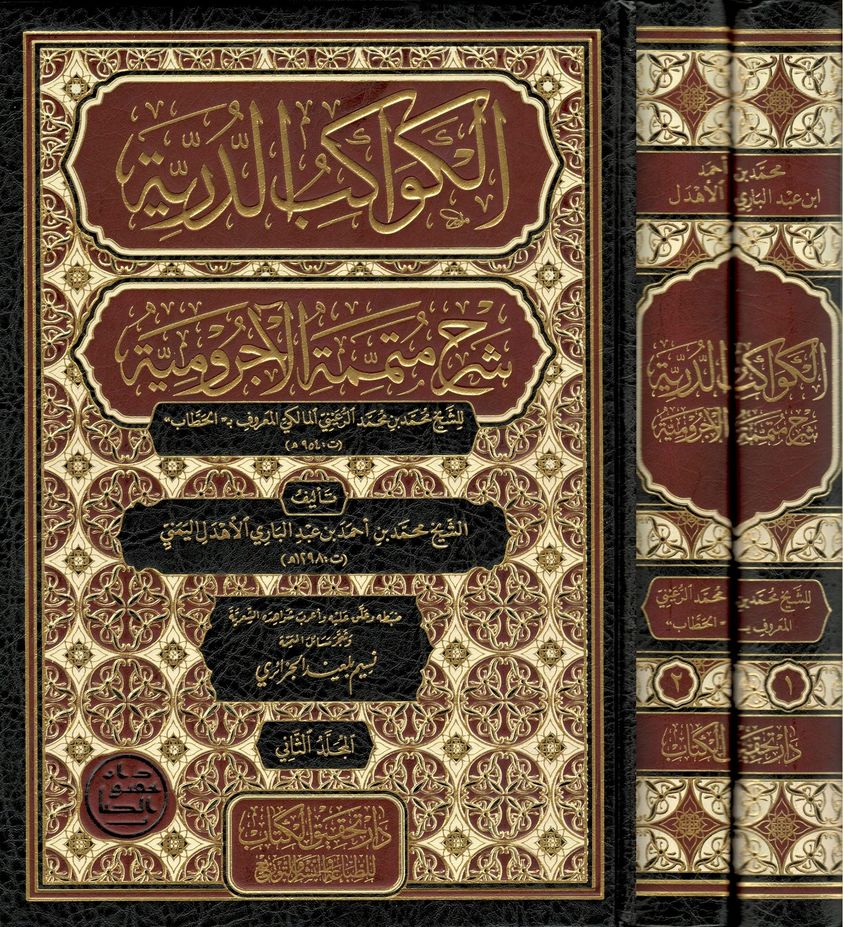 الكواكب الدرية
شرح متممة الآجرومية
للشيخ محمد بن محمد الرعيني المالكي المعروف بـ "الحطاب"
(ت: ٩٥٤ هـ)
تأليف
الشيخ محمد بن أحمد بن عبد الباري الأهدل اليمني
(ت: ١٢٩٨ هـ)
ضبطه وعلق عليه وأعرب شواهده الشعرية
نسيم بلعيد الجزائري
المجلد الثاني
دار تحقيق الكتاب
للطباعة والنشر والتوزيع
دار تحقيق الكتاب
محمد بن أحمد
ابن عبد الباري الأهدل
الكواكب الدرية
شرح متممة الآجرومية
للشيخ محمد بن محمد الرعيني
المعروف بـ "الحطاب"
١ ٢
دار تحقيق الكتاب